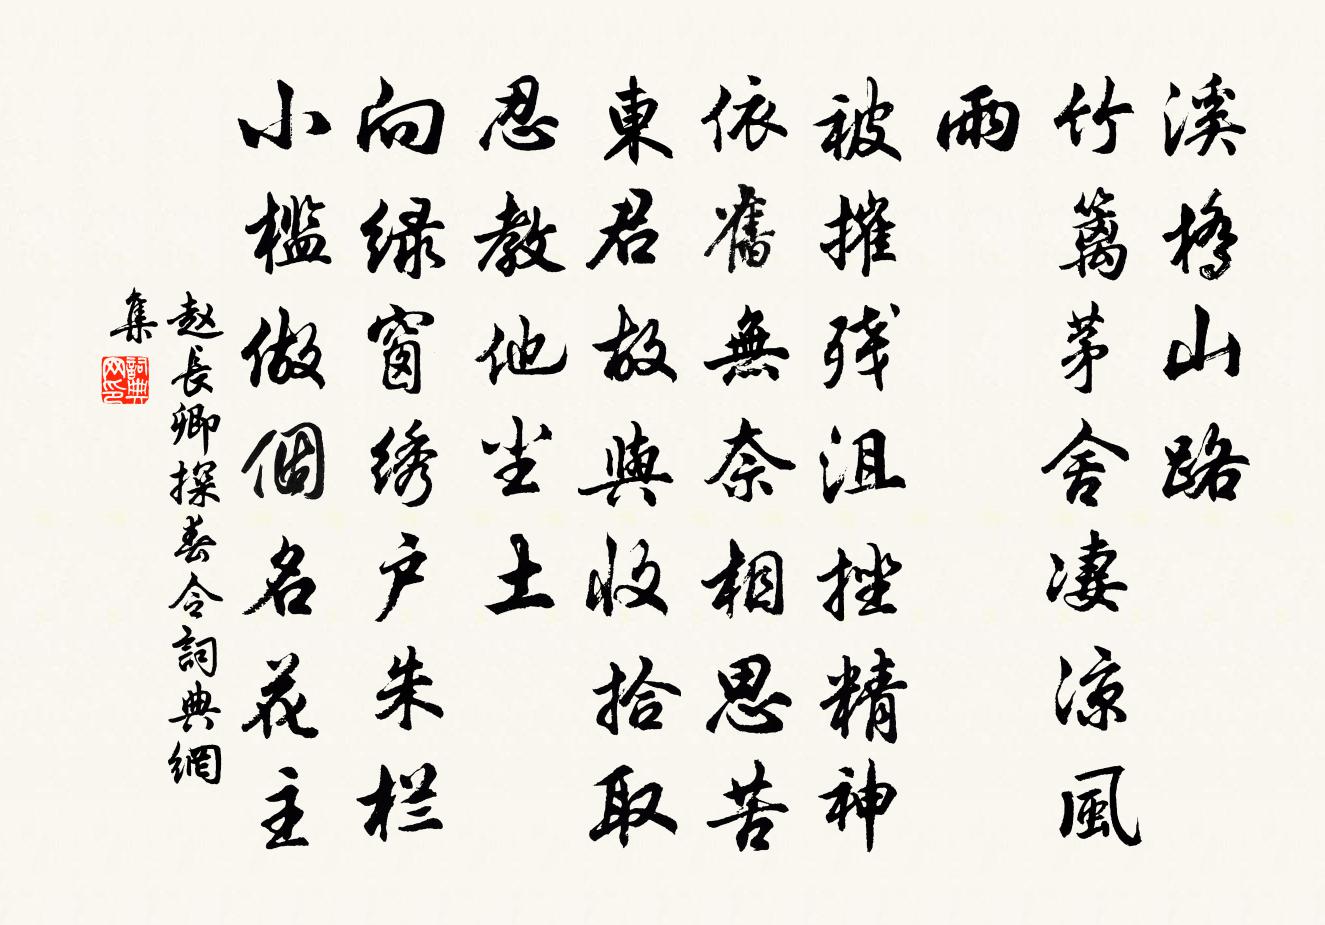 溪橋山路
竹籬茅舍凄涼風
雨
被摧残沮挫精神
依舊無奈相思苦
東君故與收拾取
忍教他坐土
向緑窗绣户朱栏
小檻做個名花主
赵長卿探春令詞典網
集
詞典网印